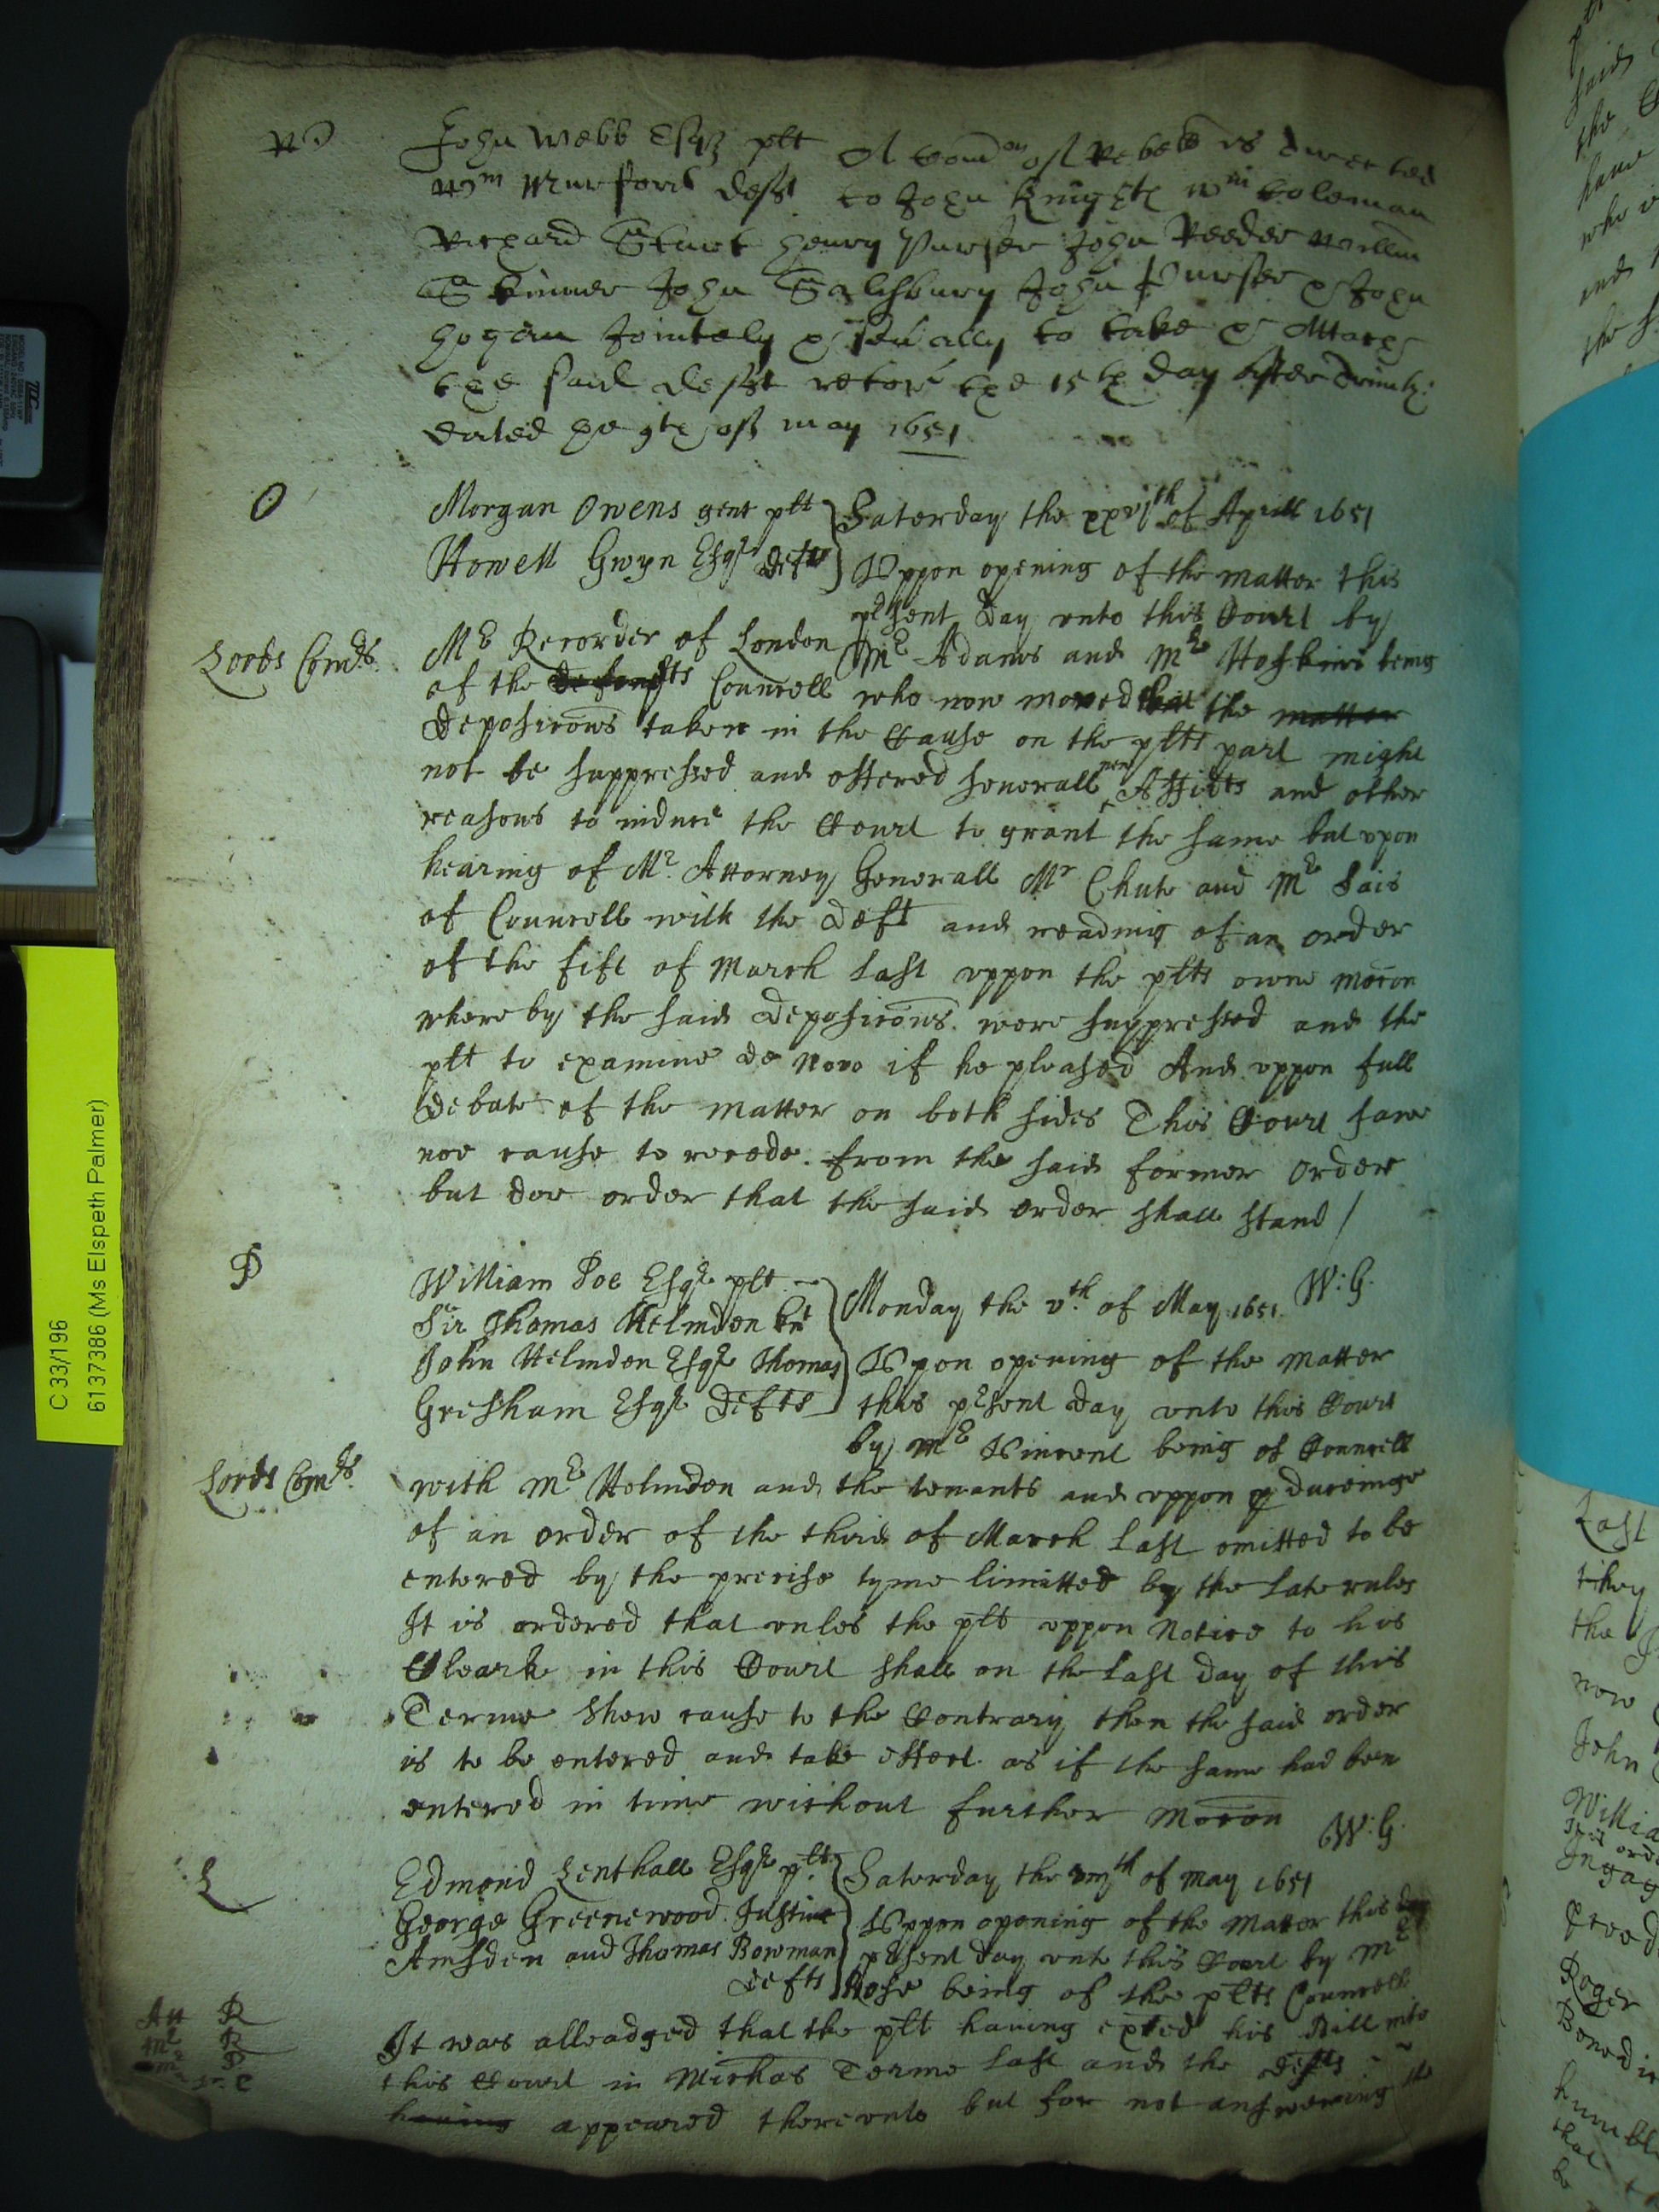 W
John Webb Esqr plt A Comon of Rebell is directed
Wm Mumford deft to John Knight Wm Coleman
Richard Start Henry Purser John Reeder Willm
Skinner John Salisbury John Purser & John
Hogan Jointely & seually to take & Attach
the said deft retor the 15th day after Trinity
dated the 9th of may 1651
O
Morgan Owens gent plt
Howell Gwyn Esqr deft
Saterday the xxvjth of Aprill 1651
Vppon opening of the matter this
pesent day vnto this Court by
Lords Comrs
Mr Recorder of London Mr Adams and Mr Hoskins being
of the Councell who now moved that the matter
deposicons taken in the Cause on the plts part might
not be suppressed and offered seuerall new Affidts and other
reasons to induce the Court to grant the same but vpon
hearing of Mr Attorney Generall Mr Chute and Mr Sais
of Councell with the deft and reading of an order
of the fift of March last vppon the plts owne mocon
whereby the said deposicons were suppressed and the
plt to examine de novo if he pleased And vppon full
debate of the matter on both sides This Court saw
noe cause to recede from the said former order
but doe order that the said order shall stand /
W:G.
P
William Poe Esqr plt
Sir Thomas Helmden kt
John Helmden Esqr Thomas
Gresham Esqr defts
Monday the vth of May 1651
Vpon opening of the matter
this pesent day vnto this Court
by Mr Vincent being of Councell
Lords Comrs
with Mr Helmden and the tenants and vppon pduceinge
of an order of the third of March last omitted to be
entered by the precise tyme limitted by the late rules
It is ordered that vnles the plt vppon Notice to his
Clearke in this Court shall on the last day of this
Terme shew cause to the Contrary then the said order
is to be entered and take effect as if the same had been
entered in time without further mocon
W:G.
L
Edmond Lenthall Esqr plt
George Greenewood Justine
Amsden and Thomas Bowman
defts
Saterday the of May 1651
Vppon opening of the Matter this day
pesent day vnto this Court by Mr
Rose being of the plts Councell
It was alleadged that the plt hauing exted his Bill into
this Court in Michas Terme last and the defts
hauing appeared therevnto but for not answering the
C 33/196
6137386 (Ms Elspeth Palmer)